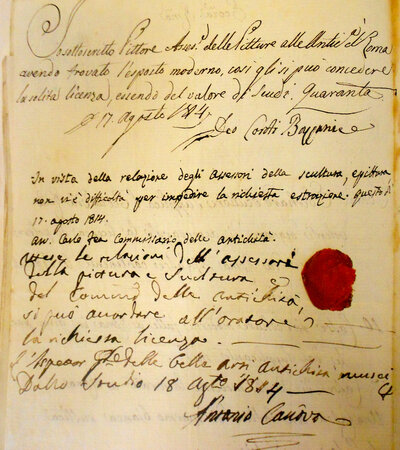 Io sottoscritto Pittore Ass.e delle Pitture alle Antic.à di Roma
avendo trovato l'esposto moderno, così gli si può concedere
la solita licenza, essendo del valore di Scudi Quaranta
17. Agosto 1814,
In vista della relazione degli assessori della scultura, e pittura
non vi è difficoltà per impedire la richiesta estrazione. questo dì
17. agosto 1814.
av. Carlo Fea Commissario delle antichità.
Attese le relazioni dell'assessore
della pittura e Scultura e
del Comm.o delle Antichità,
si può accordare all'oratore
la richiesta licenza.
L'Ispettor G.le delle belle arti antichità musei
Dallo Studio 18 Ag.to 1814
Antonio Canova